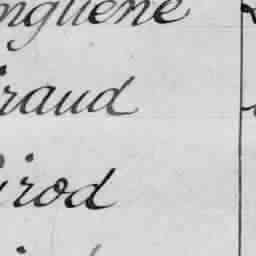 nguene
raud
irod